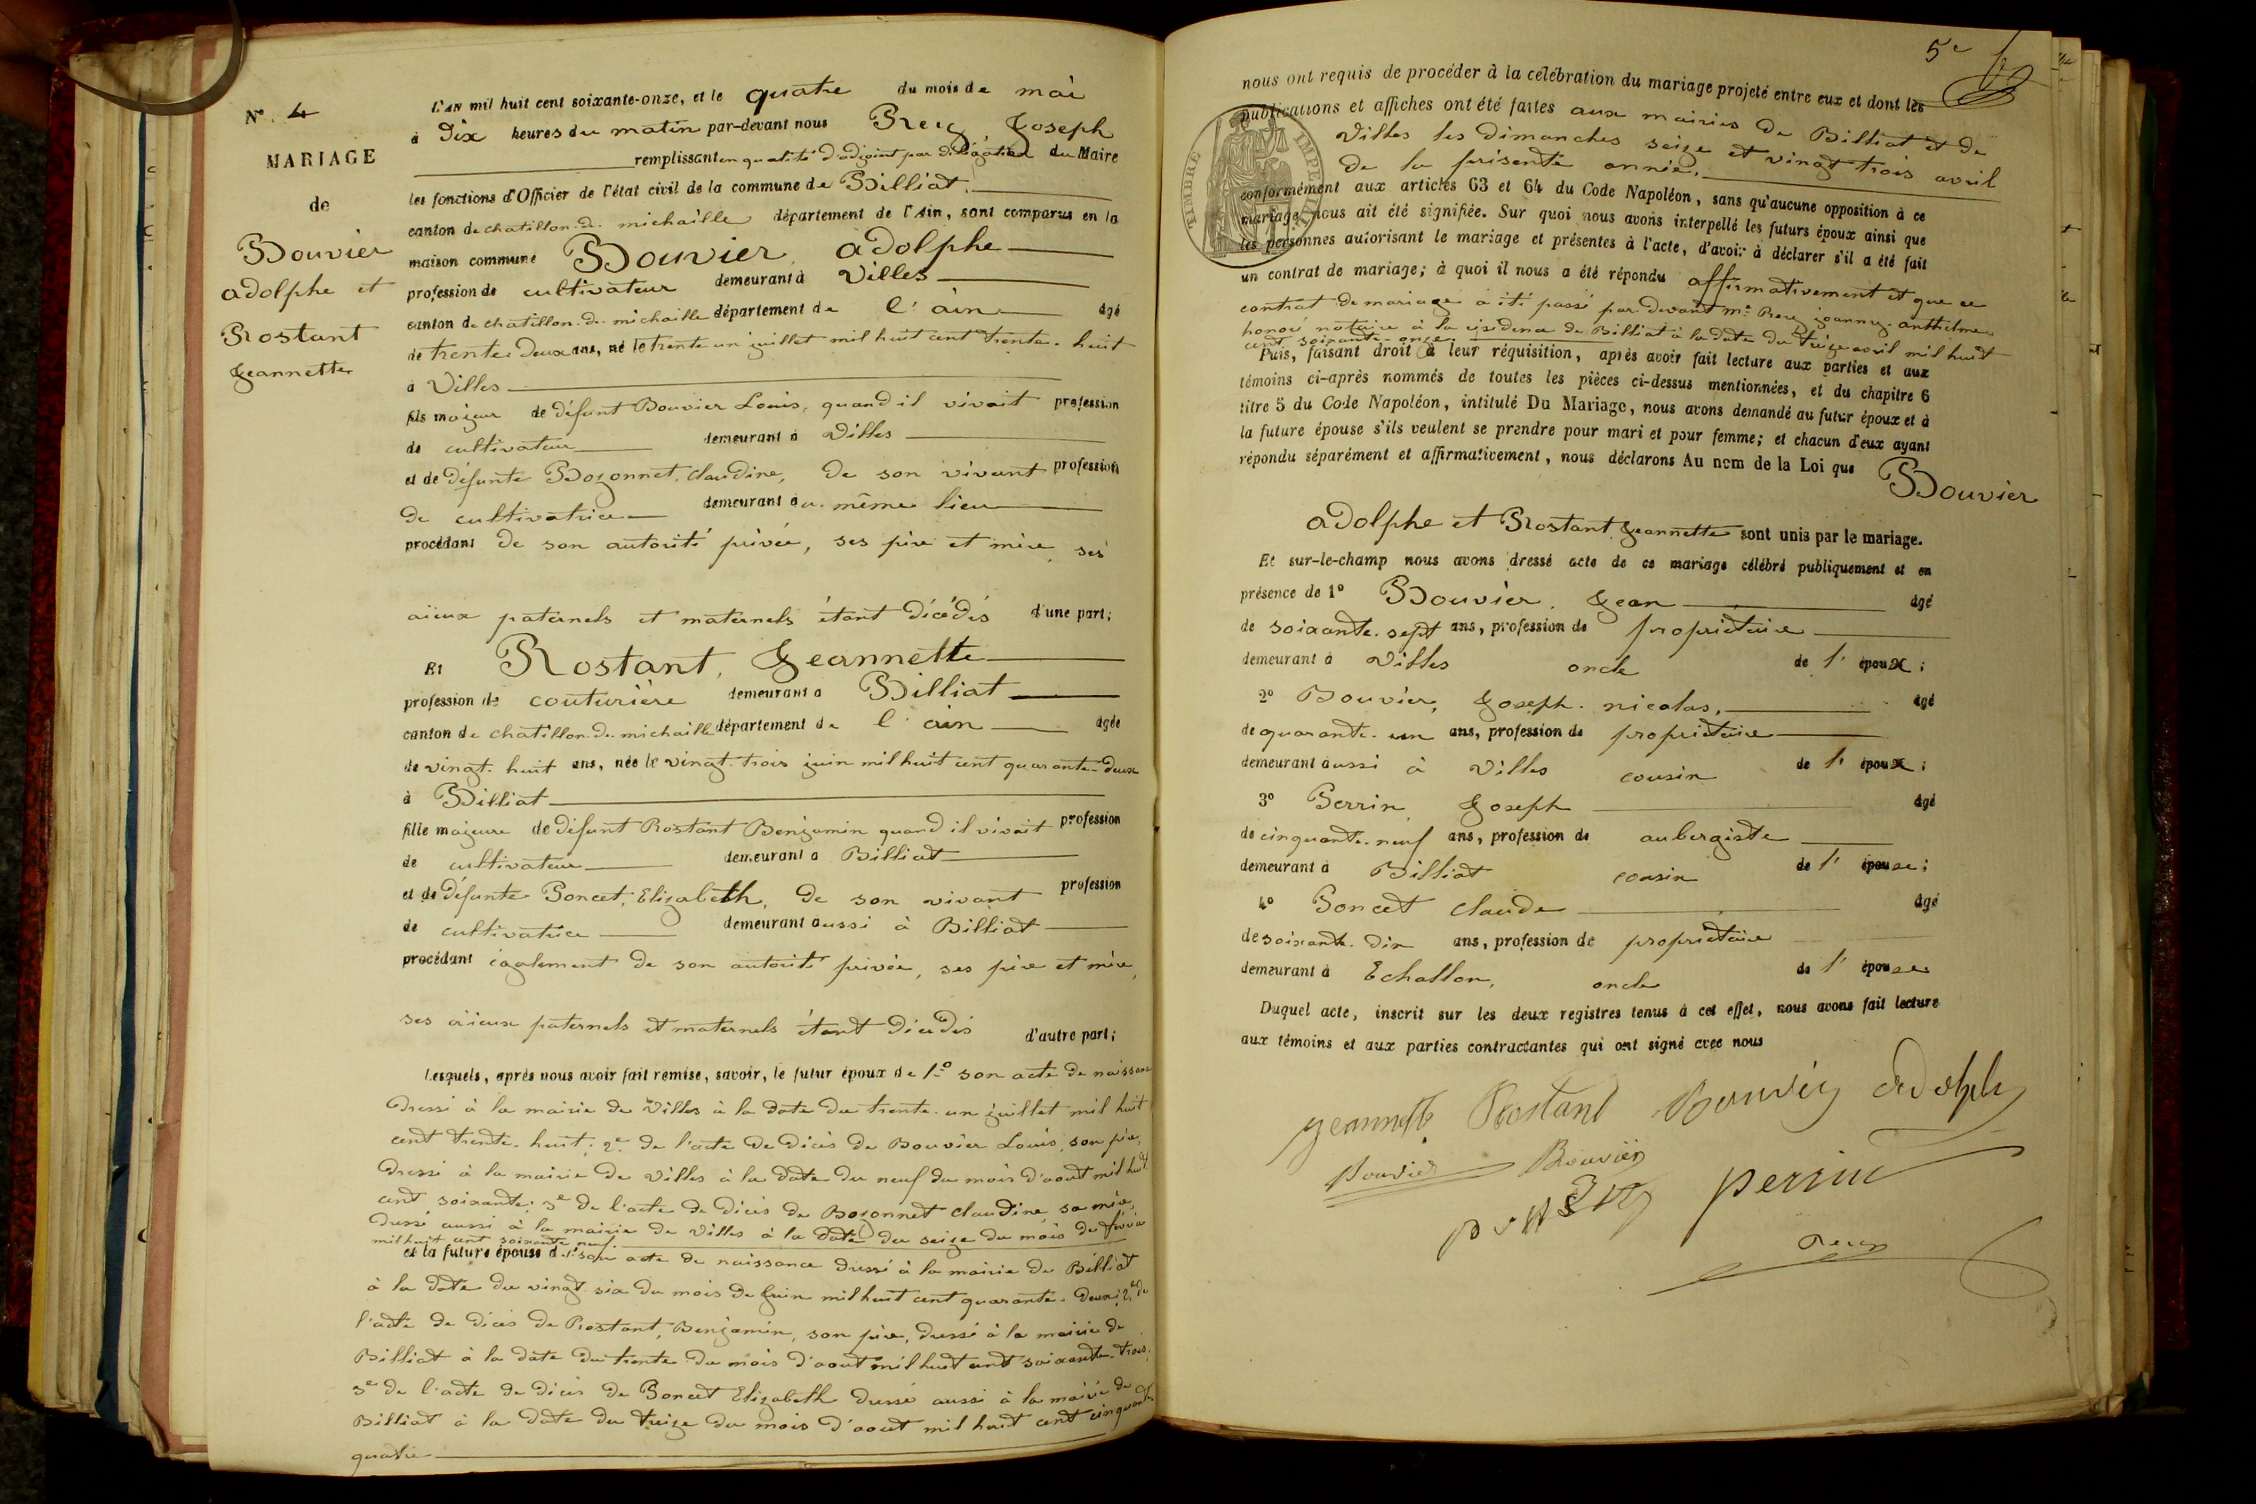 N°. 4
MARIAGE
de
Bouvier
adolphe et
Rostant
Jeannette
L'AN mil huit cent soixante-onze, et le quatre du mois de mai
à Dix heures du matin par-devant nous Joseph
remplissant en qualité d'adjoint par délégation du Maire
les fonctions d'Officier de l'état civil de la commune de Billiat,
canton de chatillon-de-michaille département de l'Ain, sont comparus en la
maison commune Bouvier, adolphe
profession de cultivateur demeurant à Villes
canton de chatillon-de-michaille département de l'ain âgé
de trente-deux ans, né le trente un juillet mil huit cent trente-huit
à Villes
fils majeur de défunt Bouvier Louis, quand il vivait profession
de cultivateur demeurant à Villes
et de défunte Bozonnet, Claudine, de son vivant profession
de cultivatrice demeurant au même lieu
procédant de son autorité privée, ses père et mère, ses
aïeux paternels et maternels étant décédés d'une part;
Et Rostant, Jeannette
profession de couturière demeurant à Billiat
canton de chatillon-de-michaille département de l'ain âgée
de vingt-huit ans, née le vingt-trois juin mil huit cent quarante-deux
à Billiat
fille majeure de défunt Rostant Benjamin quand il vivait profession
de cultivateur demeurant à Billiat
et de défunte Poncet, Elizabeth, de son vivant profession
de cultivatrice demeurant aussi à Billiat
procédant également de son autorité privée, ses père et mère,
ses aïeux paternels et maternels étant décédés d'autre part;
Lesquels, après nous avoir fait remise, savoir, le futur époux de 1° son acte de naissance
dressé à la mairie de Villes à la date du trente-un juillet mil huit
cent trente-huit; 2° de l'acte de décès de Bouvier Louis, son père,
dressé à la mairie de Villes à la date du neuf du mois d'aout mil huit
cent soixante; 3° de l'acte de décès de Bozonnet Claudine, sa mère,
dressé aussi à la mairie de Villes à la date du seize du mois de
mil huit cent soixante neuf
et la future épouse de 1° son acte de naissance dressé à la mairie de Billiat
à la date du vingt-six du mois de Juin mil huit cent quarante-deux; 2° de
l'acte de décès de Rostant, Benjamin, son père, dressé à la mairie de
Billiat à la date du trente du mois d'aout mil huit cent soixante-trois;
3° de l'acte de décès de Poncet Elizabeth dressé aussi à la mairie de
Billiat à la date du treize du mois d'aout mil huit cent cinquante
quatre
5e
nous ont requis de procéder à la célébration du mariage projeté entre eux et dont les
publications et affiches ont été faites aux mairies de Billiat et de
Villes les dimanches seize et vingt trois avril
de la présente année,
TIMBRE IMPERIAL
conformément aux articles 63 et 64 du Code Napoléon, sans qu'aucune opposition à ce
mariage nous ait été signifiée. Sur quoi nous avons interpellé les futurs époux ainsi que
les personnes autorisant le mariage et présentes à l'acte, d'avoir à déclarer s'il a été fait
un contrat de mariage; à quoi il nous a été répondu affirmativement et que ce
contrat de mariage a été passé par devant me anthelme
notaire à la résidence de Billiat à la date du treize avril mil huit
cent soixante-onze.
Puis, faisant droit à leur réquisition, après avoir fait lecture aux parties et aux
témoins ci-après nommés de toutes les pièces ci-dessus mentionnées, et du chapitre 6
titre 5 du Code Napoléon, intitulé Du Mariage, nous avons demandé au futur époux et à
la future épouse s'ils veulent se prendre pour mari et pour femme; et chacun d'eux ayant
répondu séparément et affirmativement, nous déclarons Au nom de la Loi que Bouvier
adolphe et Rostant, Jeannette sont unis par le mariage.
Et sur-le-champ nous avons dressé acte de ce mariage célébré publiquement et en
présence de 1° Bouvier, Jean âgé
de soixante-sept ans, profession de propriétaire
demeurant à Villes oncle de l'époux;
2° Bouvier, Joseph-nicolas, âgé
de quarante-un ans, profession de propriétaire
demeurant aussi à Villes cousin de l'époux;
3° Perrin, Joseph âgé
de cinquante-neuf ans, profession de aubergiste
demeurant à Billiat cousin de l'épouse;
4° Poncet Claude âgé
de soixante-dix ans, profession de propriétaire
demeurant à Echallon, oncle de l'épouse
Duquel acte, inscrit sur les deux registres tenus à cet effet, nous avons fait lecture
aux témoins et aux parties contractantes qui ont signé avec nous
jeannette Rostant Bouvier Adolphe
Bouvier Bouvier
perrin